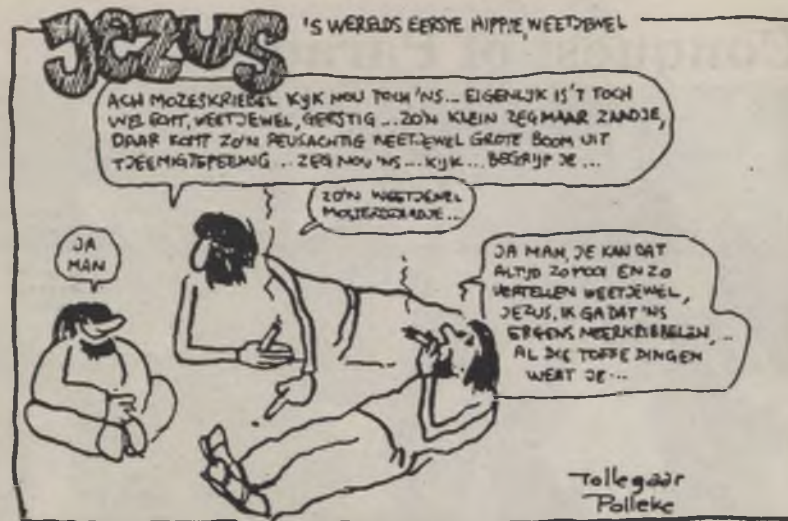 JEZUS
'S WERELDS EERSTE HIPPIE, WEETJEWEL
ACH MOZESKRIEBEL KIJK NOU TOCH 'NS... EIGENLIJK IS'T TOCH
WEL ECHT, WEETJEWEL, GEESTIG... ZO'N KLEIN ZEG MAAR ZAADJE,
DAAR KOMT ZO'N REUSACHTIG WEETJEWEL GROTE BOOM UIT
... ZEG NOU 'NS... KIJK... BEGRIJP JE...
ZO'N WEETJEWEL
MOSTERDZAADJE...
JA
MAN
JA MAN, JE KAN DAT
ALTIJD ZO MOOI EN ZO
VERTELLEN WEETJEWEL,
JEZUS, IK GA DAT 'NS
ERGENS NEERKRIBBELEN,..
AL DIE TOFFE DINGEN
WEET JE...
Tollegaar
Polleke